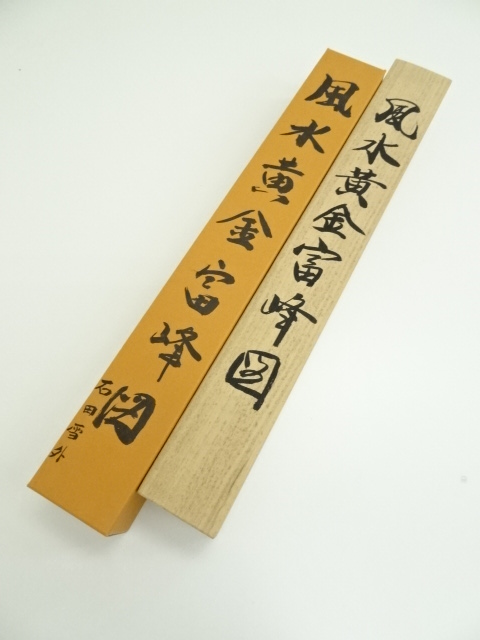 風水黄金富峰図
風水黄金富峰図
石田雪外